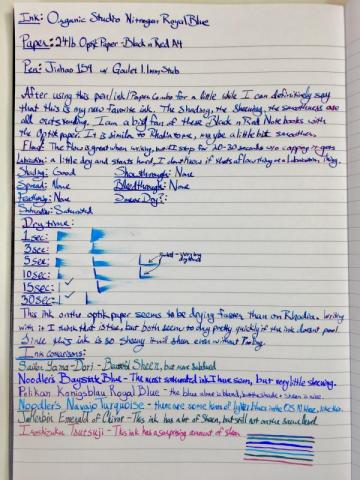 Ink: Organic Studio Nitrogen Royal Blue
Paper: 24lb Optik Paper - Black n Red A4
Pen: Jinhao 159 w/ Goulet 1.1mm Stub
After using this pen/ink/Paper Combo for a little while I can definitively say
that this is my new favorite ink. The Shading, the Sheening, the smoothness are
all outstanding. I am a big fan of these Black n Red Notebooks with
the Optik paper. It is similar to Rhodia tone, maybe a little bit smoother.
Flow: The flow is great when writing, but if I stop for 20-30 seconds w/o capping it gets
Lubrication: a little dry and starts hard, I don't know if thats a flow thing or a Lubrication thing.
Shading: Good Showthrough: None
Spread: None Bleedthrough: None
Feathering: None Smear Dry?:
Saturation: Saturated
Dry time:
1sec:
3sec:
5sec:
10sec:
15sec:
30sec:
This ink on the optik paper seems to be drying faster than on Rhodia. Writing
with it I think that is true, but both seem to dry pretty quickly if the ink doesnt pool.
Since this ink is so sheeny it will sheen even without Pooling.
Ink comparisons:
Sailor Yama-Dori - Beautiful Sheen, but more subdued
Noodler's Baystate Blue - The most saturated ink I have seen, but very little sheening.
Pelikan Konigsblau Royal Blue - the blue alone is bland, but the shade + sheen is nice
Noodler's Navajo Turquoise - there are some kinds of lighter blues in the OS N
J. Herbin Emerald of Chivor - This ink has a lot of Sheen, but still not on the same level
Iroshizuku Tsutsuji - This ink has a surprising amount of sheen